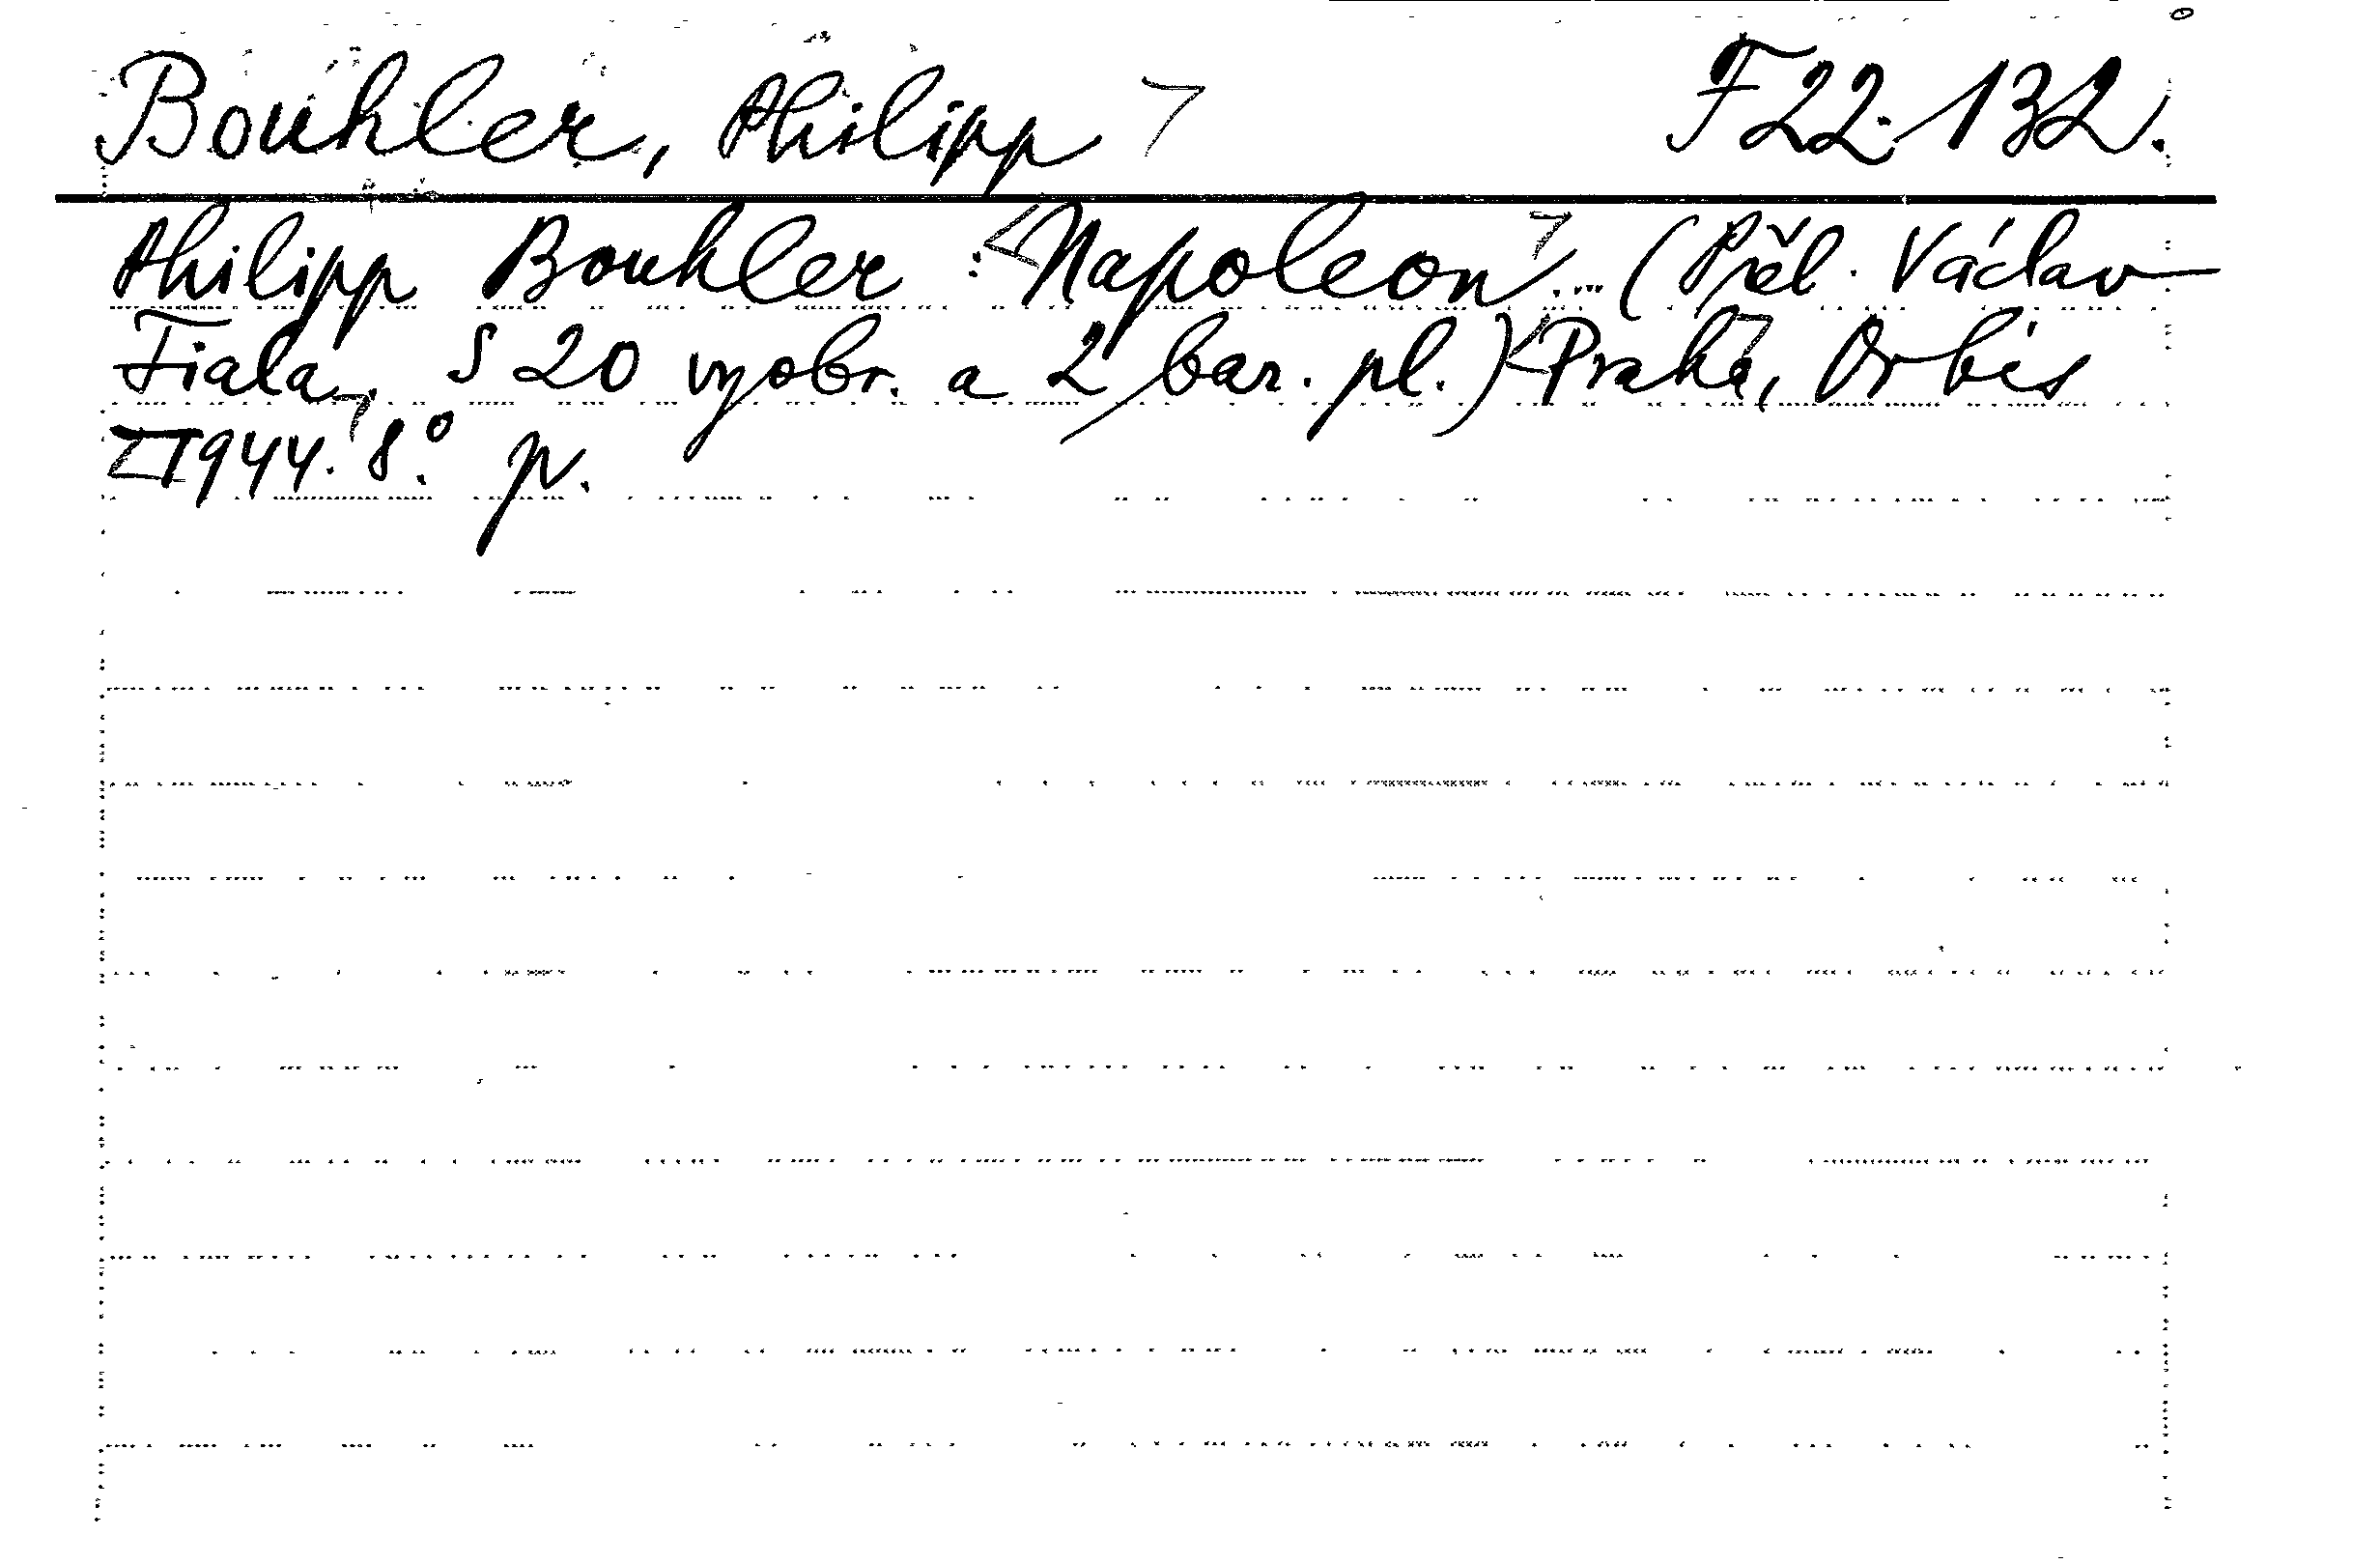 Bouhler, Philipp F 22.132.
Philipp Bouhler : Napoleon... (Přel. Václav
Fiala. S 20 vyobr. a 2 bar. pl.) Praha, Orbis
1944. 8.° p.